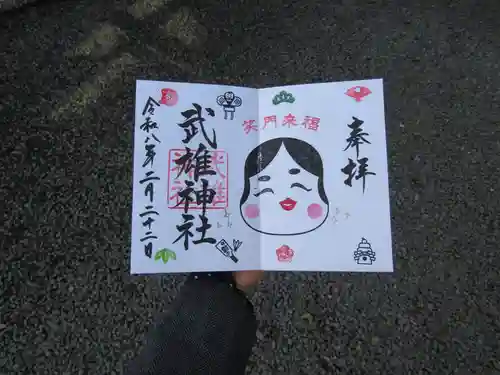 奉拝
笑門来福
武雄神社
令和八年二月二十二日